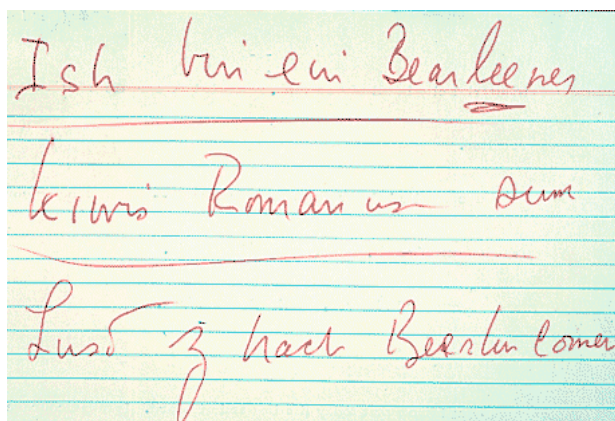 Ish bin ein Bearleener
kiwis Romanus sum
Lasd z nach Bearlin comen